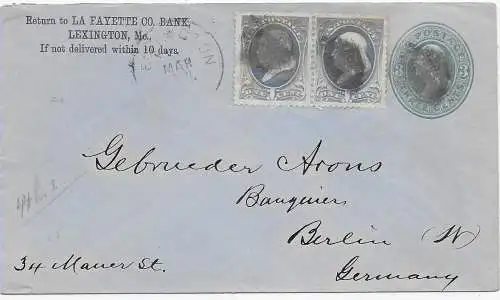 Return to LA FAYETTE CO. BANK,
LEXINGTON, Mo.,
If not delivered within 10 days.
MAR
U.S. POSTAGE
Gebrueder Arons
Banquiers
Berlin (W)
34 Mauer St.
Germany